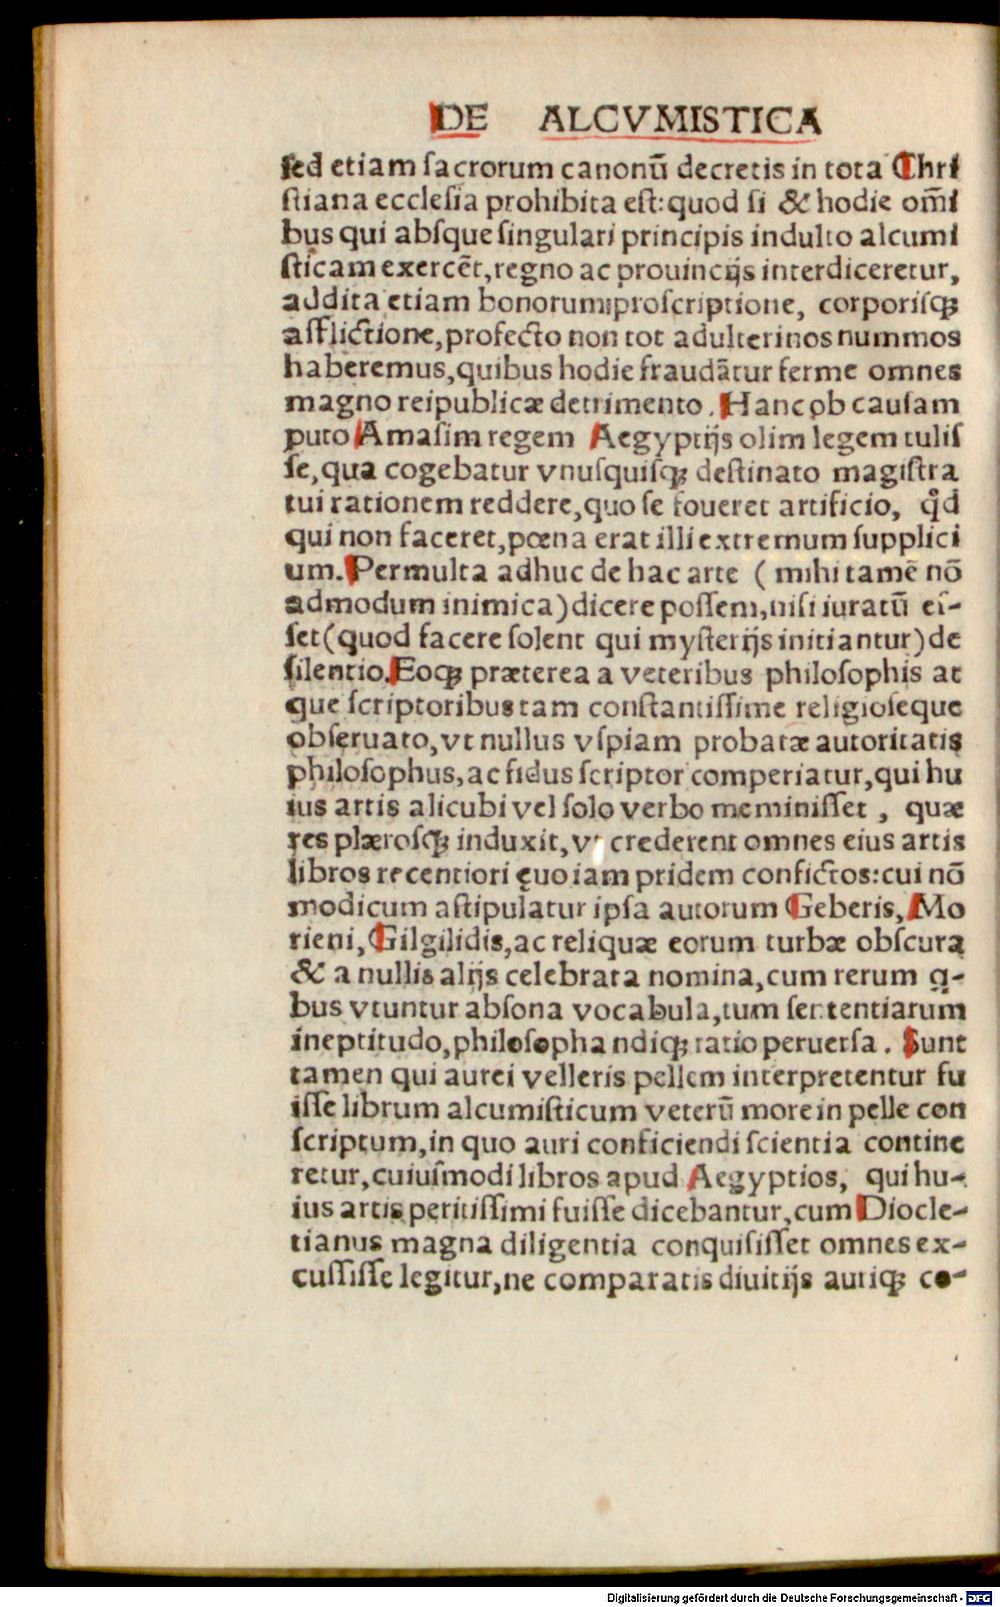 DE ALCVMISTICA
ſed etiam ſacrorum canonũ decretis in tota Chri
ſtiana eccleſia prohibita eſt: quod ſi & hodie om̃i
bus qui abſque ſingulari principis indulto alcumi
ſticam exercẽt, regno ac prouincijs interdiceretur,
addita etiam bonorum proſcriptione, corporiſqꝫ
afflictione, profecto non tot adulterinos nummos
haberemus, quibus hodie fraudãtur ferme omnes
magno reipublicæ detrimento. Hanc ob cauſam
puto Amaſim regem Aegyptijs olim legem tuliſ
ſe, qua cogebatur vnuſquiſqꝫ deſtinato magiſtra
tui rationem reddere, quo ſe foueret artificio, qͦd
qui non faceret, pœna erat illi extremum ſupplici
um. Permulta adhuc de hac arte (mihi tamẽ nõ
admodum inimica) dicere poſſem, niſi iuratũ eſ-
ſet (quod facere ſolent qui myſterijs initiantur) de
ſilentio. Eoqꝫ præterea a veteribus philoſophis at
que ſcriptoribus tam conſtantiſſime religioſeque
obſeruato, vt nullus vſpiam probatæ autoritatis
philoſophus, ac fidus ſcriptor comperiatur, qui hu
ius artis alicubi vel ſolo verbo meminiſſet, quæ
res plæroſqꝫ induxit, vt crederent omnes eius artis
libros recentiori ęuo iam pridem confictos: cui nõ
modicum aſtipulatur ipſa autorum Geberis, Mo
rieni, Gilgilidis, ac reliquæ eorum turbæ obſcura
& a nullis alijs celebrata nomina, cum rerum q̃-
bus vtuntur abſona vocabula, tum ſententiarum
ineptitudo, philoſophandiqꝫ ratio peruerſa. Sunt
tamen qui aurei velleris pellem interpretentur fu
iſſe librum alcumiſticum veterũ more in pelle con
ſcriptum, in quo auri conficiendi ſcientia contine
retur, cuiuſmodi libros apud Aegyptios, qui hu-
ius artis peritiſſimi fuiſſe dicebantur, cum Diocle-
tianus magna diligentia conquiſiſſet omnes ex-
cuſſiſſe legitur, ne comparatis diuitijs auriqꝫ co-
Digitalisierung gefördert durch die Deutsche Forschungsgemeinschaft - DFG